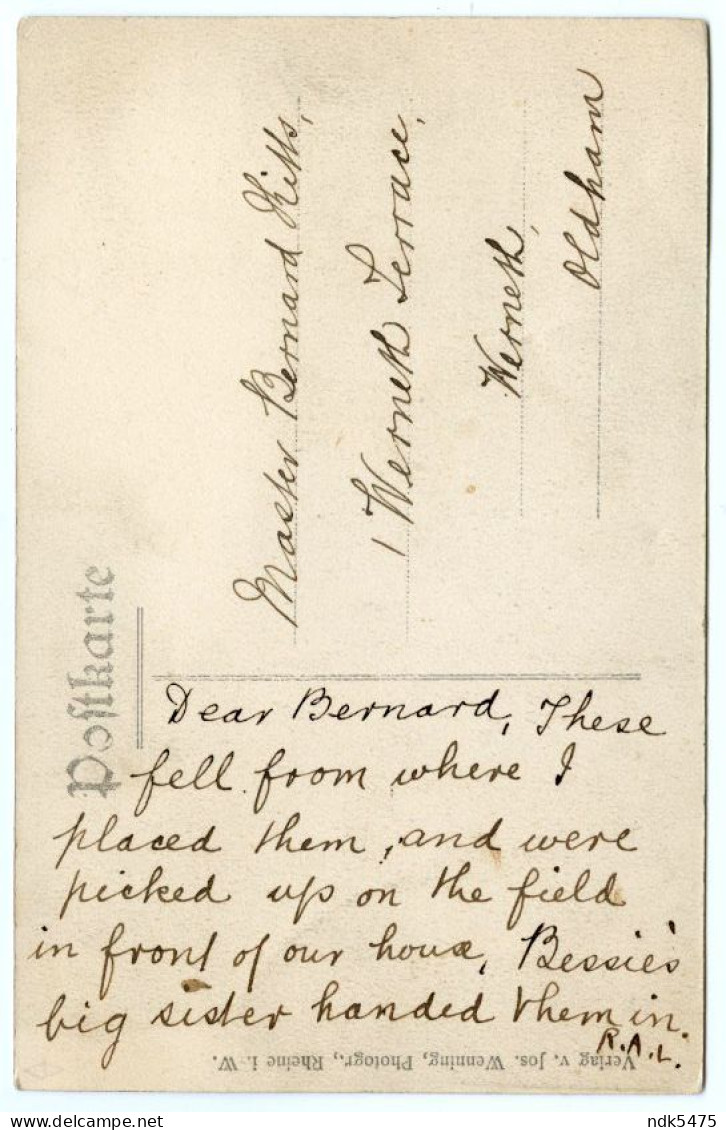 Postkarte
Master Bernard Kitts,
1 Werneth Terrace,
Werneth,
Oldham
Dear Bernard, These
fell from where I
placed them, and were
picked up on the field
in front of our house, Bessie's
big sister handed them in.
R.A.L.
Verlag v. Jos. Wenning, Photogr., Rheine i. W.
delcampe.net
ndk5475